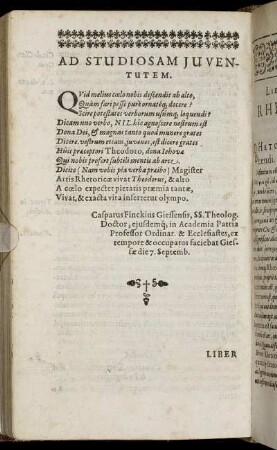 AD STUDIOSAM JUVEN-
TUTEM.
QVid melius cœlo nobis descendit ab alto,
Quàm fari posse purè ornatéq; docere?
Scire potestates verborum usumq; loquendi?
Dicam uno verbo, NIL. hic agnoscere nostrum est
Dona Dei, & magnas tanto quoq́ movere grates
Dicere. vestrum etiam, juvenes, est dicere grates
Huic præceptori Theodoto, dona Iehovæ
Qui nobis profert subtili mentis ab arte.
Dicite (Nam vobis pia verba præibo) Magister
Artis Rhetoricæ vivat Theodorus, & alto
A cœlo expectet pietatis præmia tantæ,
Vivat, & exacta vita inserretur olympo.
Casparus Finckius Giessensis, SS. Theolog.
Doctor, ejusdemq́, in Academia Patria
Professor Ordinar. & Ecclesiastes, ex
tempore & occupatus faciebat Gies-
sæ die 7. Septemb.
LIBER